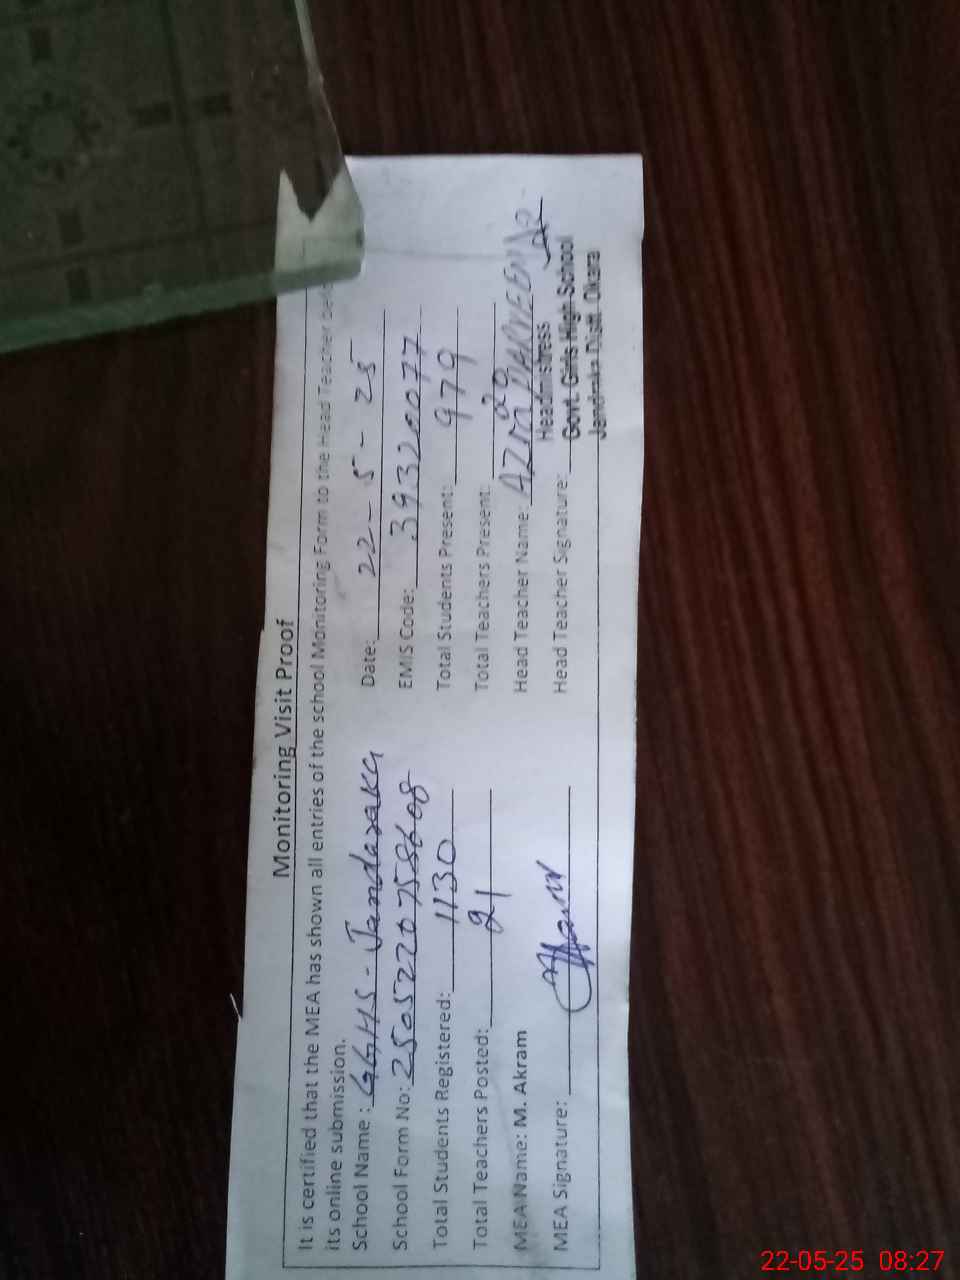 Monitoring Visit Proof
It is certified that the MEA has shown all entries of the school Monitoring Form to the Head Teacher
its online submission.
School Name : GGHS - Jandraka
Date: 22 - 5 - 25
School Form No: 2505220758608
EMIS Code: 39320077
Total Students Registered: 1130
Total Students Present: 979
Total Teachers Posted: 21
Total Teachers Present: 20
MEA Name: M. Akram
Head Teacher Name: AZRA PARVEEN
MEA Signature:
Head Teacher Signature:
Headmistress
Govt. Girls High School
Jandraka Distt. Okara
22-05-25 08:27